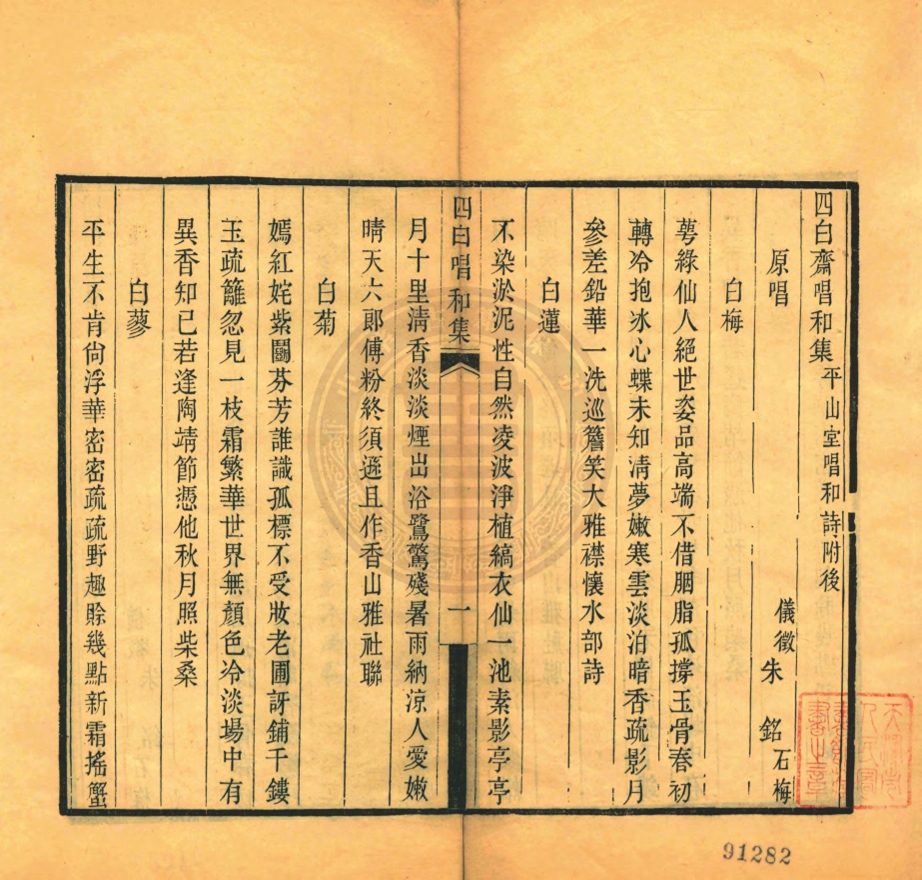 四白齋唱和集平山堂唱和詩附後
原唱
儀徵朱 銘石梅
白梅
萼綠仙人絕世姿品高端不借胭脂孤撐玉骨春初
轉冷抱冰心蝶未知清夢嫩寒雲淡泊暗香疏影月
參差鉛華一洗巡簷笑大雅襟懷水部詩
白蓮
不染淤泥性自然凌波淨植縞衣仙一池素影亭亭
四白唱和集
一
月十里清香淡淡煙出浴鷺驚殘暑雨納涼人愛嫩
晴天六郎傅粉終須遜且作香山雅社聯
白菊
嫣紅姹紫鬭芬芳誰識孤標不受妝老圃訝鋪千鏤
玉疏籬忽見一枝霜繁華世界無顏色冷淡場中有
異香知己若逢陶靖節憑他秋月照柴桑
白蓼
平生不肯尙浮華密密疏疏野趣賒幾點新霜搖蟹
91282